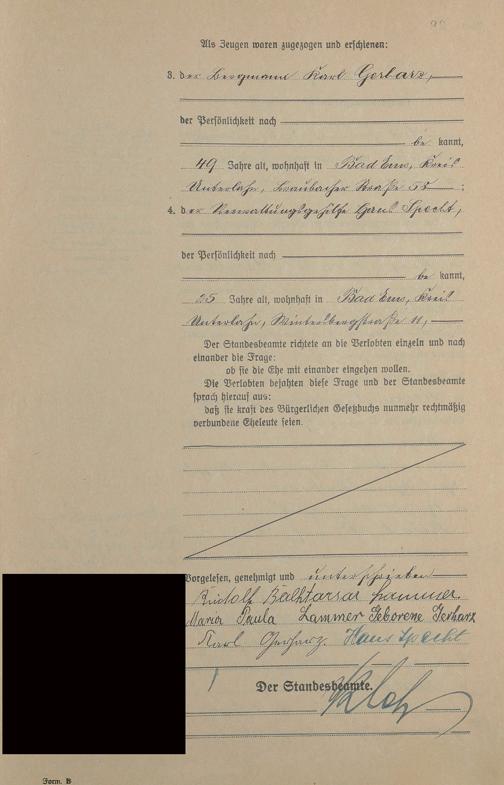 Als Zeugen waren zugezogen und erschienen:
3. der Bergmann Karl Gerharz,
der Persönlichkeit nach
be kannt,
49 Jahre alt, wohnhaft in Bad Ems, Kreis
Unterlahn, Braubacher Straße 55 ;
4. der Verwaltungsgehilfe Hans Specht,
der Persönlichkeit nach
be kannt,
25 Jahre alt, wohnhaft in Bad Ems, Kreis
Unterlahn, Wintersbergstraße 11,
Der Standesbeamte richtete an die Verlobten einzeln und nach
einander die Frage:
ob sie die Ehe mit einander eingehen wollen.
Die Verlobten bejahten diese Frage und der Standesbeamte
sprach hierauf aus:
daß sie kraft des Bürgerlichen Gesetzbuchs nunmehr rechtmäßig
verbundene Eheleute seien.
Vorgelesen, genehmigt und unterschrieben
Rudolf Balthasar Lammer.
Maria Paula Lammer Geborene Gerharz
Karl Gerharz. Hans Specht
Der Standesbeamte.
Form. B